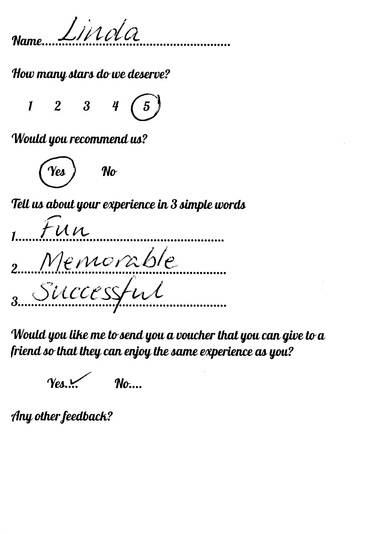 Name.......Linda.......
How many stars do we deserve?
1 2 3 4 5
Would you recommend us?
Yes No
Tell us about your experience in 3 simple words
1.......Fun.......
2.......Memorable.......
3.......Successful.......
Would you like me to send you a voucher that you can give to a
friend so that they can enjoy the same experience as you?
Yes.... No....
Any other feedback?